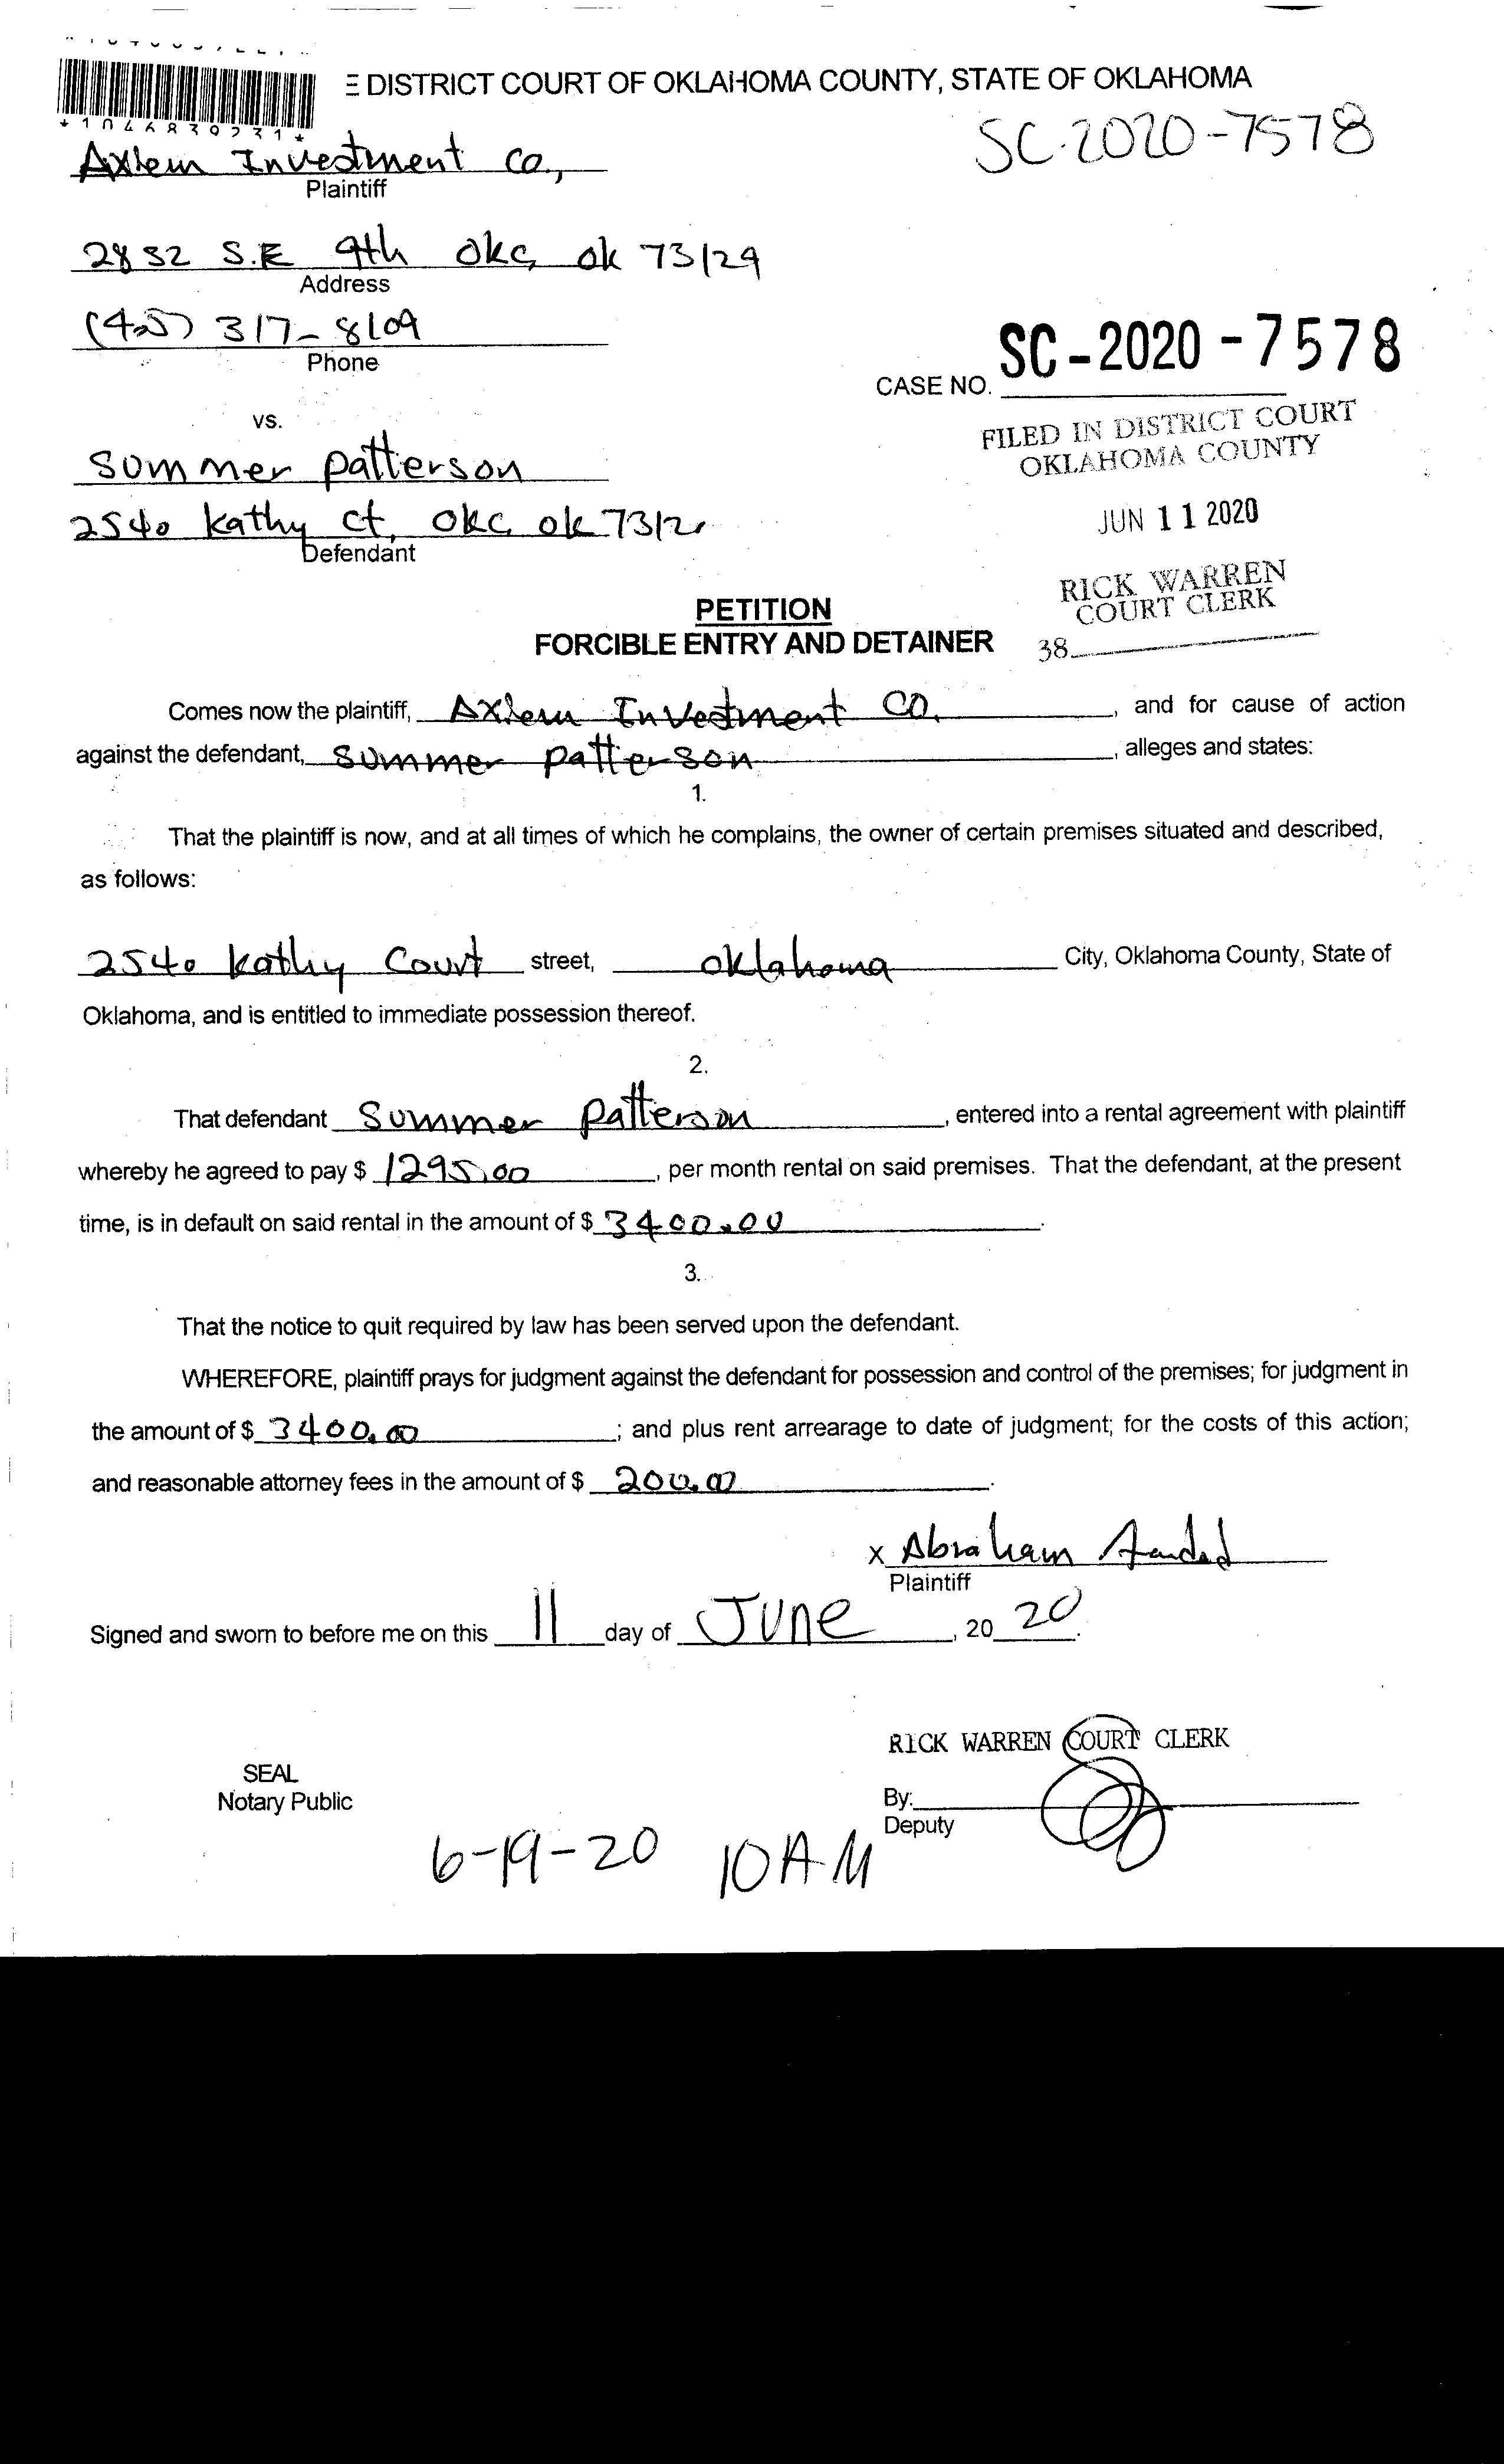 DISTRICT COURT OF OKLAHOMA COUNTY, STATE OF OKLAHOMA
SC-2020-7578
Investment Co,
Plaintiff
2832 S.E 9th Okc, ok 73129
Address
317-8109
Phone
SC-2020-7578
CASE NO.
vs.
FILED IN DISTRICT COURT
OKLAHOMA COUNTY
Summer Patterson
2540 Kathy ct, OKC ok
Defendant
JUN 11 2020
RICK WARREN
COURT CLERK
38
PETITION
FORCIBLE ENTRY AND DETAINER
Comes now the plaintiff, Investment CO. , and for cause of action
against the defendant, Summer Patterson , alleges and states:
1.
That the plaintiff is now, and at all times of which he complains, the owner of certain premises situated and described,
as follows:
2540 Kathy Court street, Oklahoma City, Oklahoma County, State of
Oklahoma, and is entitled to immediate possession thereof.
2.
That defendant Summer Patterson , entered into a rental agreement with plaintiff
whereby he agreed to pay $ 1295.00 , per month rental on said premises. That the defendant, at the present
time, is in default on said rental in the amount of $ 3400.00 .
3.
That the notice to quit required by law has been served upon the defendant.
WHEREFORE, plaintiff prays for judgment against the defendant for possession and control of the premises; for judgment in
the amount of $ 3400.00 ; and plus rent arrearage to date of judgment; for the costs of this action;
and reasonable attorney fees in the amount of $ 200.00 .
x Abraham
Plaintiff
Signed and sworn to before me on this 11 day of June , 20 20 .
RICK WARREN COURT CLERK
SEAL
Notary Public
By:
Deputy
6-19-20 10AM